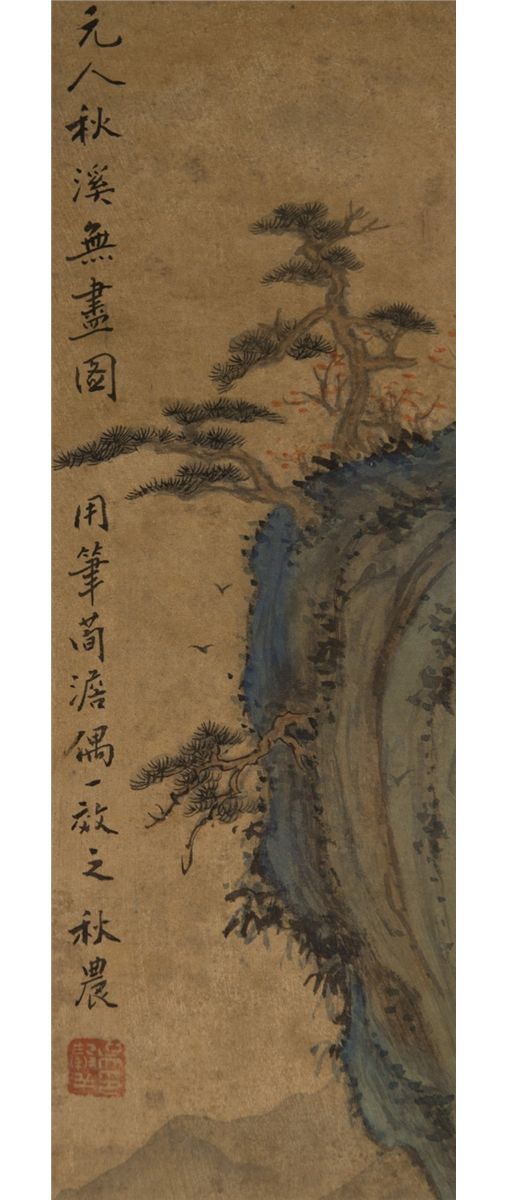 元人秋溪無盡圖 用筆簡澹偶一效之 秋農